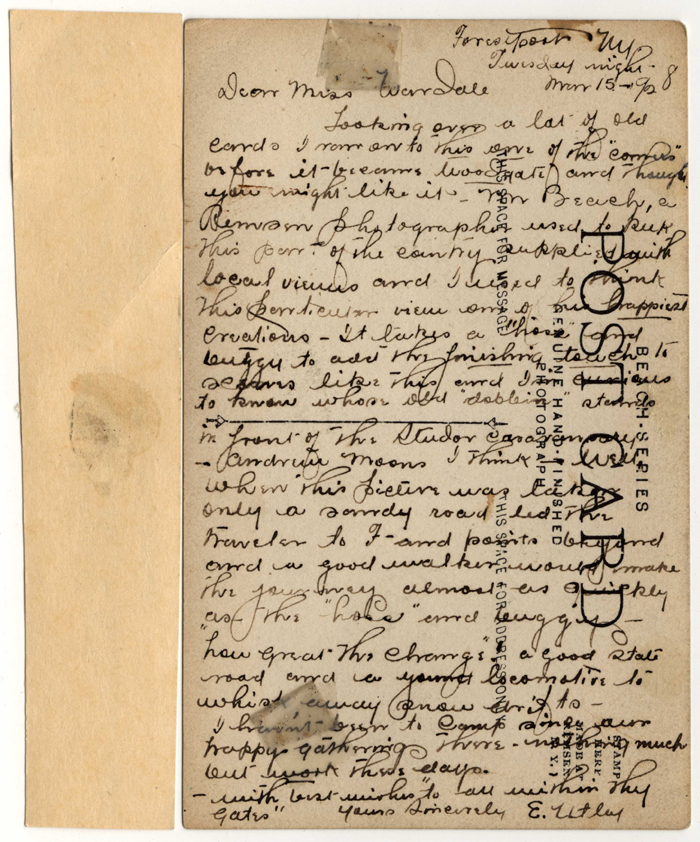 Forestport NY
Tuesday night.
Mar 15 - 8
Dear Miss Wardale
Looking over a lot of old
cards I ran on to this one of the "corners"
before it became and thought
you might like it - Mr Beach, a
Remsen photographer used to keep
this part of the country supplied with
local views and I used to think
this particular view one of his happiest
creations - It takes a "hoss" and
buggy to add the finishing touch to
scenes like this and I'm curious
to know whose old "dobbin" stands
in front of the Studor
- Andrew Moons I think - Well
when this picture was taken
only a sandy road led the
traveler to F - and points beyond
and a good walker would make
the journey almost as quickly
as the "hoss" and buggy -
"how great the change", a good state
road and a locomotive to
whisk away snow drifts -
I haven't been to camp since our
happy gathering there - nothing much
but work these days.
- with best wishes to "all within thy
gates" Yours Sincerely E. Utley
BEACH-SERIES
POST CARD
GENUINE HAND-FINISHED
PHOTOGRAPH
THIS SPACE FOR MESSAGE
THIS SPACE FOR ADDRESS ONLY
STAMP
HERE
MADE AT
REMSEN
N.Y.